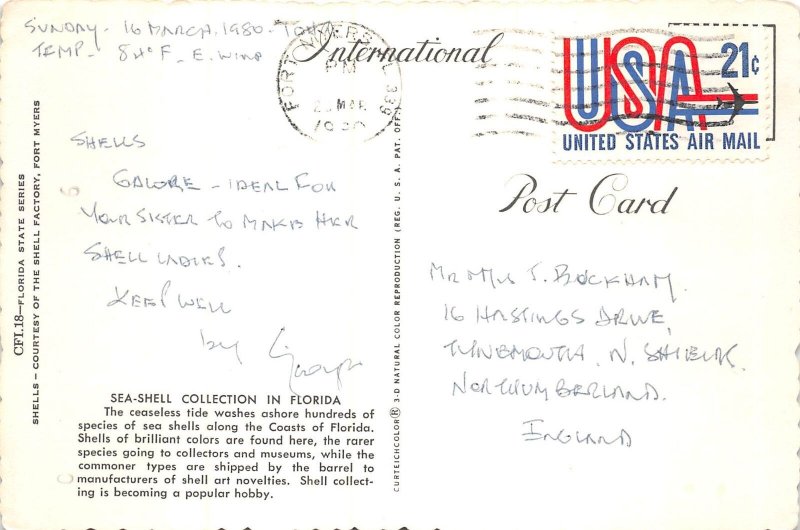 SUNDAY - 16 MARCH. 1980 -
TEMP - 84°F - E. WIND
SHELLS
GALORE - IDEAL FOR
YOUR SISTER TO MAKE HER
SHELL LADIES.
KEEP WELL
by George
SEA-SHELL COLLECTION IN FLORIDA
The ceaseless tide washes ashore hundreds of
species of sea shells along the Coasts of Florida.
Shells of brilliant colors are found here, the rarer
species going to collectors and museums, while the
commoner types are shipped by the barrel to
manufacturers of shell art novelties. Shell collect-
ing is becoming a popular hobby.
CFI.18—FLORIDA STATE SERIES
SHELLS—COURTESY OF THE SHELL FACTORY, FORT MYERS
CURTEICHCOLOR® 3-D NATURAL COLOR REPRODUCTION (REG. U. S. A. PAT. OFF.)
International
FORT MYERS, FL 339
PM
MAR
1980
USA 21¢
UNITED STATES AIR MAIL
Post Card
MR MRS J. BUCKHAM.
16 HASTINGS DRIVE,
TYNEMOUTH. N. SHIELDS.
NORTHUMBERLAND.
ENGLAND